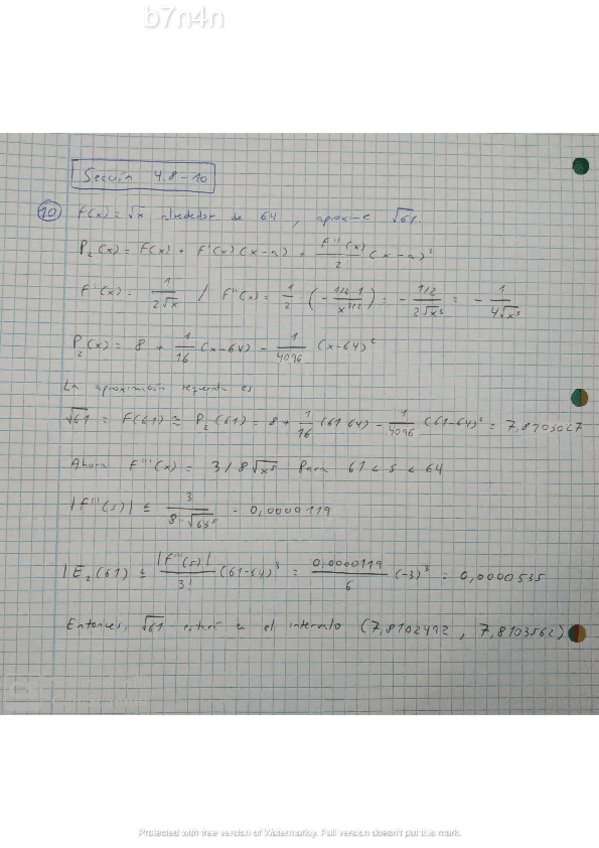 b7n4n
Sección 4.8-10
10 F(x) = √x alrededor de 64, aproxime √61.
P₂(x) = F(x) + F'(x)(x-a) + F''(x)/2! (x-a)²
F'(x) = 1/(2√x) / F''(x) = 1/2 · (- 1/2·1/x^(3/2)) = - (1/2)/(2√x³) = - 1/(4√x³)
P₂(x) = 8 + 1/16 (x-64) - 1/4096 (x-64)²
La aproximación es
√61 = F(61) ≅ P₂(61) = 8 + 1/16 (61-64) - 1/4096 (61-64)² = 7,8103027
Ahora F'''(x) = 3/8√x⁵ Para 61 < s < 64
|F'''(s)| ≤ 3/(8·√61⁵) = 0,0000119
|E₂(61) ≤ |F'''(s)|/3! (61-64)³ = 0,0000119/6 (-3)³ = 0,0000535
Entonces, √61 en el intervalo (7,8102492, 7,8103562)
Protected with free version of Watermarkly. Full version doesn't put this mark.